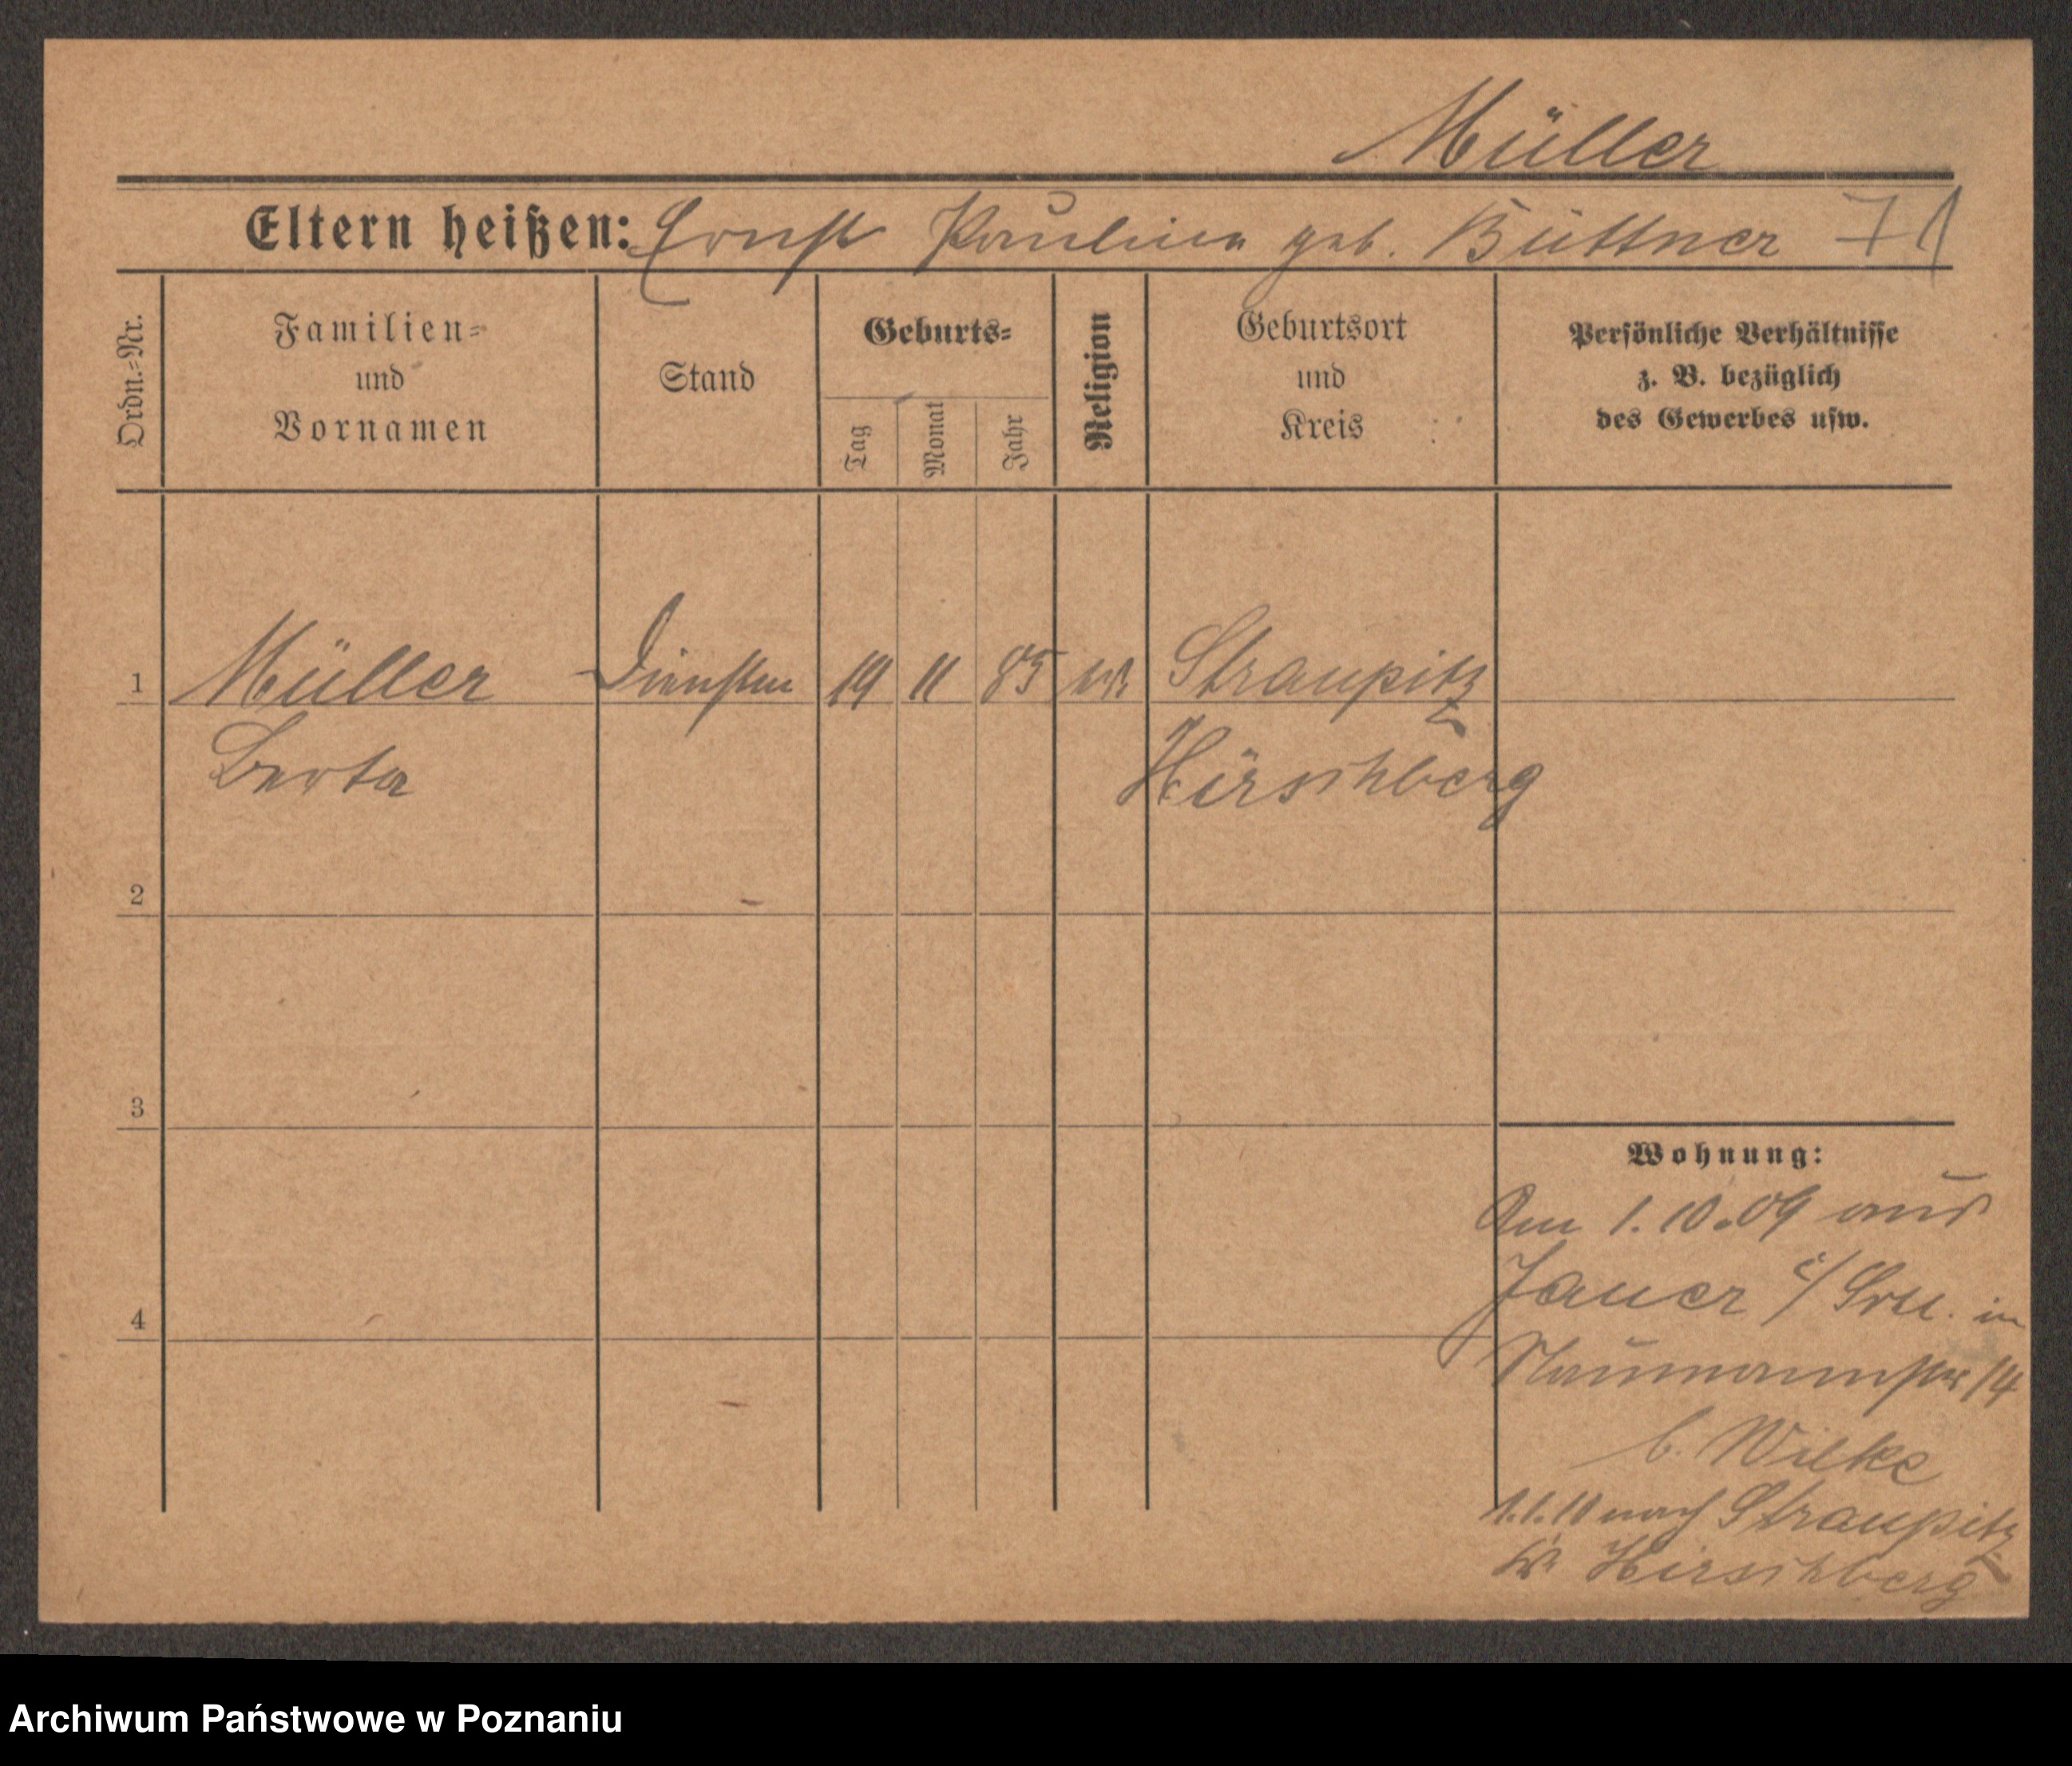 Müller
Eltern heißen: Ernst Pauline geb. Büttner 71
Ordn.=Nr.
Familien=
und
Vornamen
Stand
Geburts=
Tag
Monat
Jahr
Religion
Geburtsort
und
Kreis
Persönliche Verhältnisse
z. B. bezüglich
des Gewerbes usw.
1 Müller 19 11 85 Straupitz
Berta Hirschberg
2
3
Wohnung:
Am 1.10.09 aus
4
Jauer i/ in
Naumannstr 14
b. Wilke
1.1.10 nach Straupitz
Kr Hirschberg
Archiwum Państwowe w Poznaniu